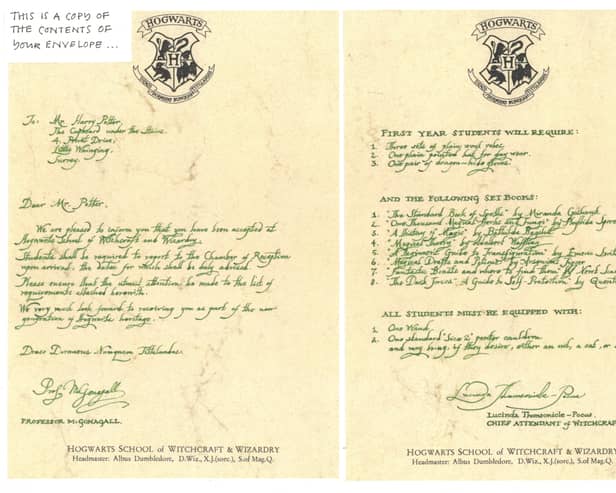 THIS IS A COPY OF
THE CONTENTS OF
YOUR ENVELOPE ...
HOGWARTS
To: Mr. Harry Potter,
The Cupboard under the Stairs,
4, Privet Drive,
Little Whinging,
Surrey.
Dear Mr. Potter,
We are pleased to inform you that you have been accepted at
Hogwarts School of Witchcraft and Wizardry.
Students shall be required to report to the Chamber of Reception
upon arrival, the dates for which shall be duly advised.
Please ensure that the utmost attention be made to the list of
requirements attached herewith.
We very much look forward to receiving you as part of the new
generation of Hogwarts heritage.
Draco Dormiens Nunquam Titillandus
Prof. McGonagall
PROFESSOR McGONAGALL
HOGWARTS SCHOOL OF WITCHCRAFT & WIZARDRY
Headmaster: Albus Dumbledore, D.Wiz., X.J.(sorc.), S.of Mag.Q.
HOGWARTS
FIRST YEAR STUDENTS WILL REQUIRE:
1. Three sets of plain work robes
2. One plain pointed hat for day wear
3. One pair of dragon-hide gloves
AND THE FOLLOWING SET BOOKS:
1. "The Standard Book of Spells" by Miranda Goshawk
2. "One Thousand Magical Herbs and Fungi" by Phyllida Spore
3. "A History of Magic" by Bathilda Bagshot
4. "Magical Theory" by Adalbert Waffling
5. "A Beginners Guide to Transfiguration" by Emeric Switch
6. "Magical Drafts and Potions" by Arsenius Jigger
7. "Fantastic Beasts and where to find them" by Newt
8. "The Dark Forces: A Guide to Self-Protection" by
ALL STUDENTS MUST BE EQUIPPED WITH:
1. One Wand
2. One standard 'size 2' pewter cauldron
and may bring, if they desire, either an owl, a cat, or
Lucinda Thomsonicle-Pocus
Lucinda Thomsonicle-Pocus
CHIEF ATTENDANT OF WITCHCRAF
HOGWARTS SCHOOL OF WITCHCRAFT & WIZA
Headmaster: Albus Dumbledore, D.Wiz., X.J.(sorc.), S.of Mag.Q.